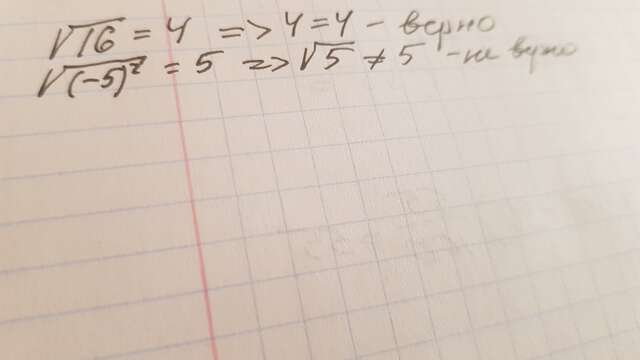 √16 = 4 => 4=4 - верно
√(-5)² = 5 => √5 ≠ 5 - не верно